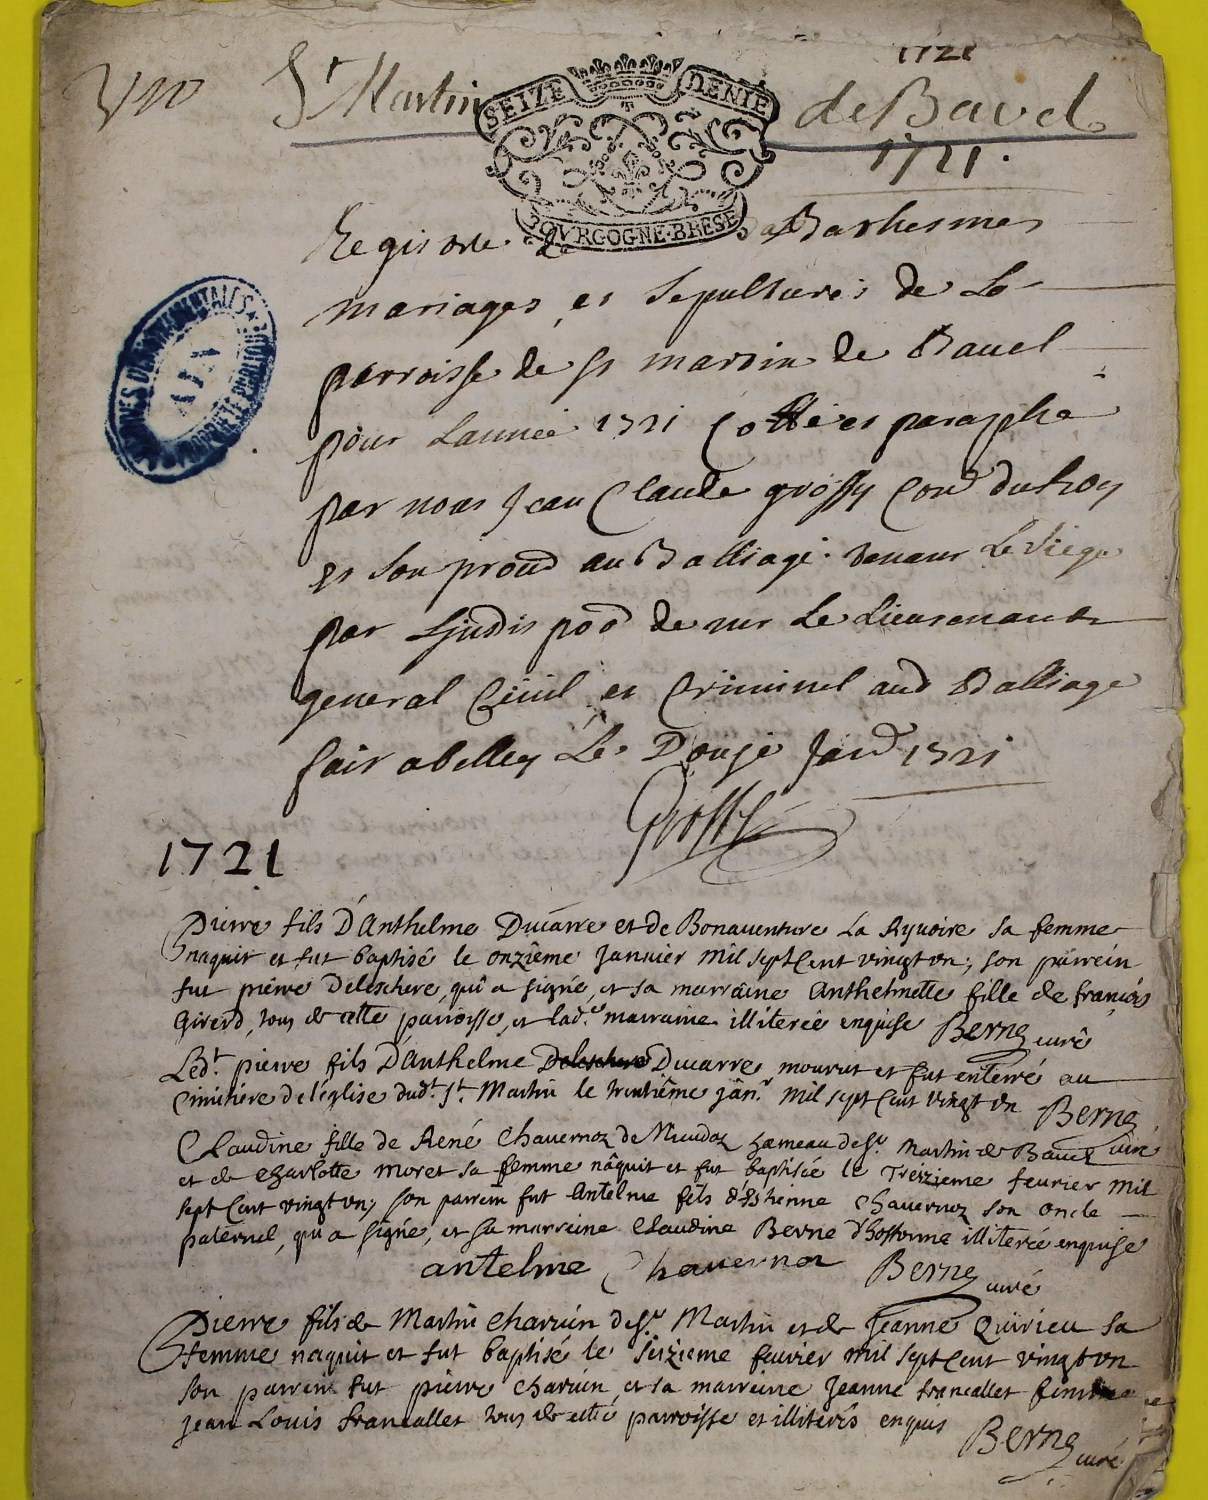 1721
St Martin de Bavel
SEIZE DENIE
1721.
BOVRGOGNE·BRESE
Registre de Baptesmes
mariages et sepultures de la
parroisse de st martin de Bavel
pour Lannée 1721 Cotté et paraphé
par nous Jean Claude grossy Conr du Roy
et son procr au Balliage tenant Le siege
par de mr le Lieutenant
general Civil et Criminel aud Balliage
fait a belley Le Douze Janr 1721
Grossy
ARCHIVES DEPARTEMENTALES
AIN
PROPRIÉTÉ PUBLIQUE
1721
Pierre fils D'Anthelme Ducarre et de Bonaventure La Ryvoire sa femme
naquit et fut baptisé le onzième Janvier mil sept Cent vingt vn; son parrein
fut pierre Deleschere, qui a signé, et sa marraine Anthelmette fille de françois
Girerd, tous de cette parroisse, et lad.e marraine illiterée enquise Berne curé
Led.t pierre fils D'Anthelme Deleschere Ducarre mourut et fut enterré au
Cimitiére de l'église dud.t St. Martin le trentième jân.r mil sept Cent vingt vn Berne curé
Claudine fille de René Chavernoz de hameau de St Martin de Bavel
et de Charlotte Moret sa femme nâquit et fut baptisée le Treizieme fevrier Mil
sept Cent vingt vn; son parrein fut Antelme fils d'Estienne Chavernoz son oncle
paternel, qui a signé, et sa marreine Claudine Berne d'hostonne illiterée enquise
antelme Chavernoz Berne curé
Pierre fils de Martin Charvin de St Martin et de Jeanne Quirieu sa
femme naquit et fut baptisé le seizieme fevrier mil sept Cent vingt vn
son parrein fut pierre Charvin et sa marreine Jeanne francallet femme
jean Louis francallet tous de cette parroisse et illiterés enquis Berne curé